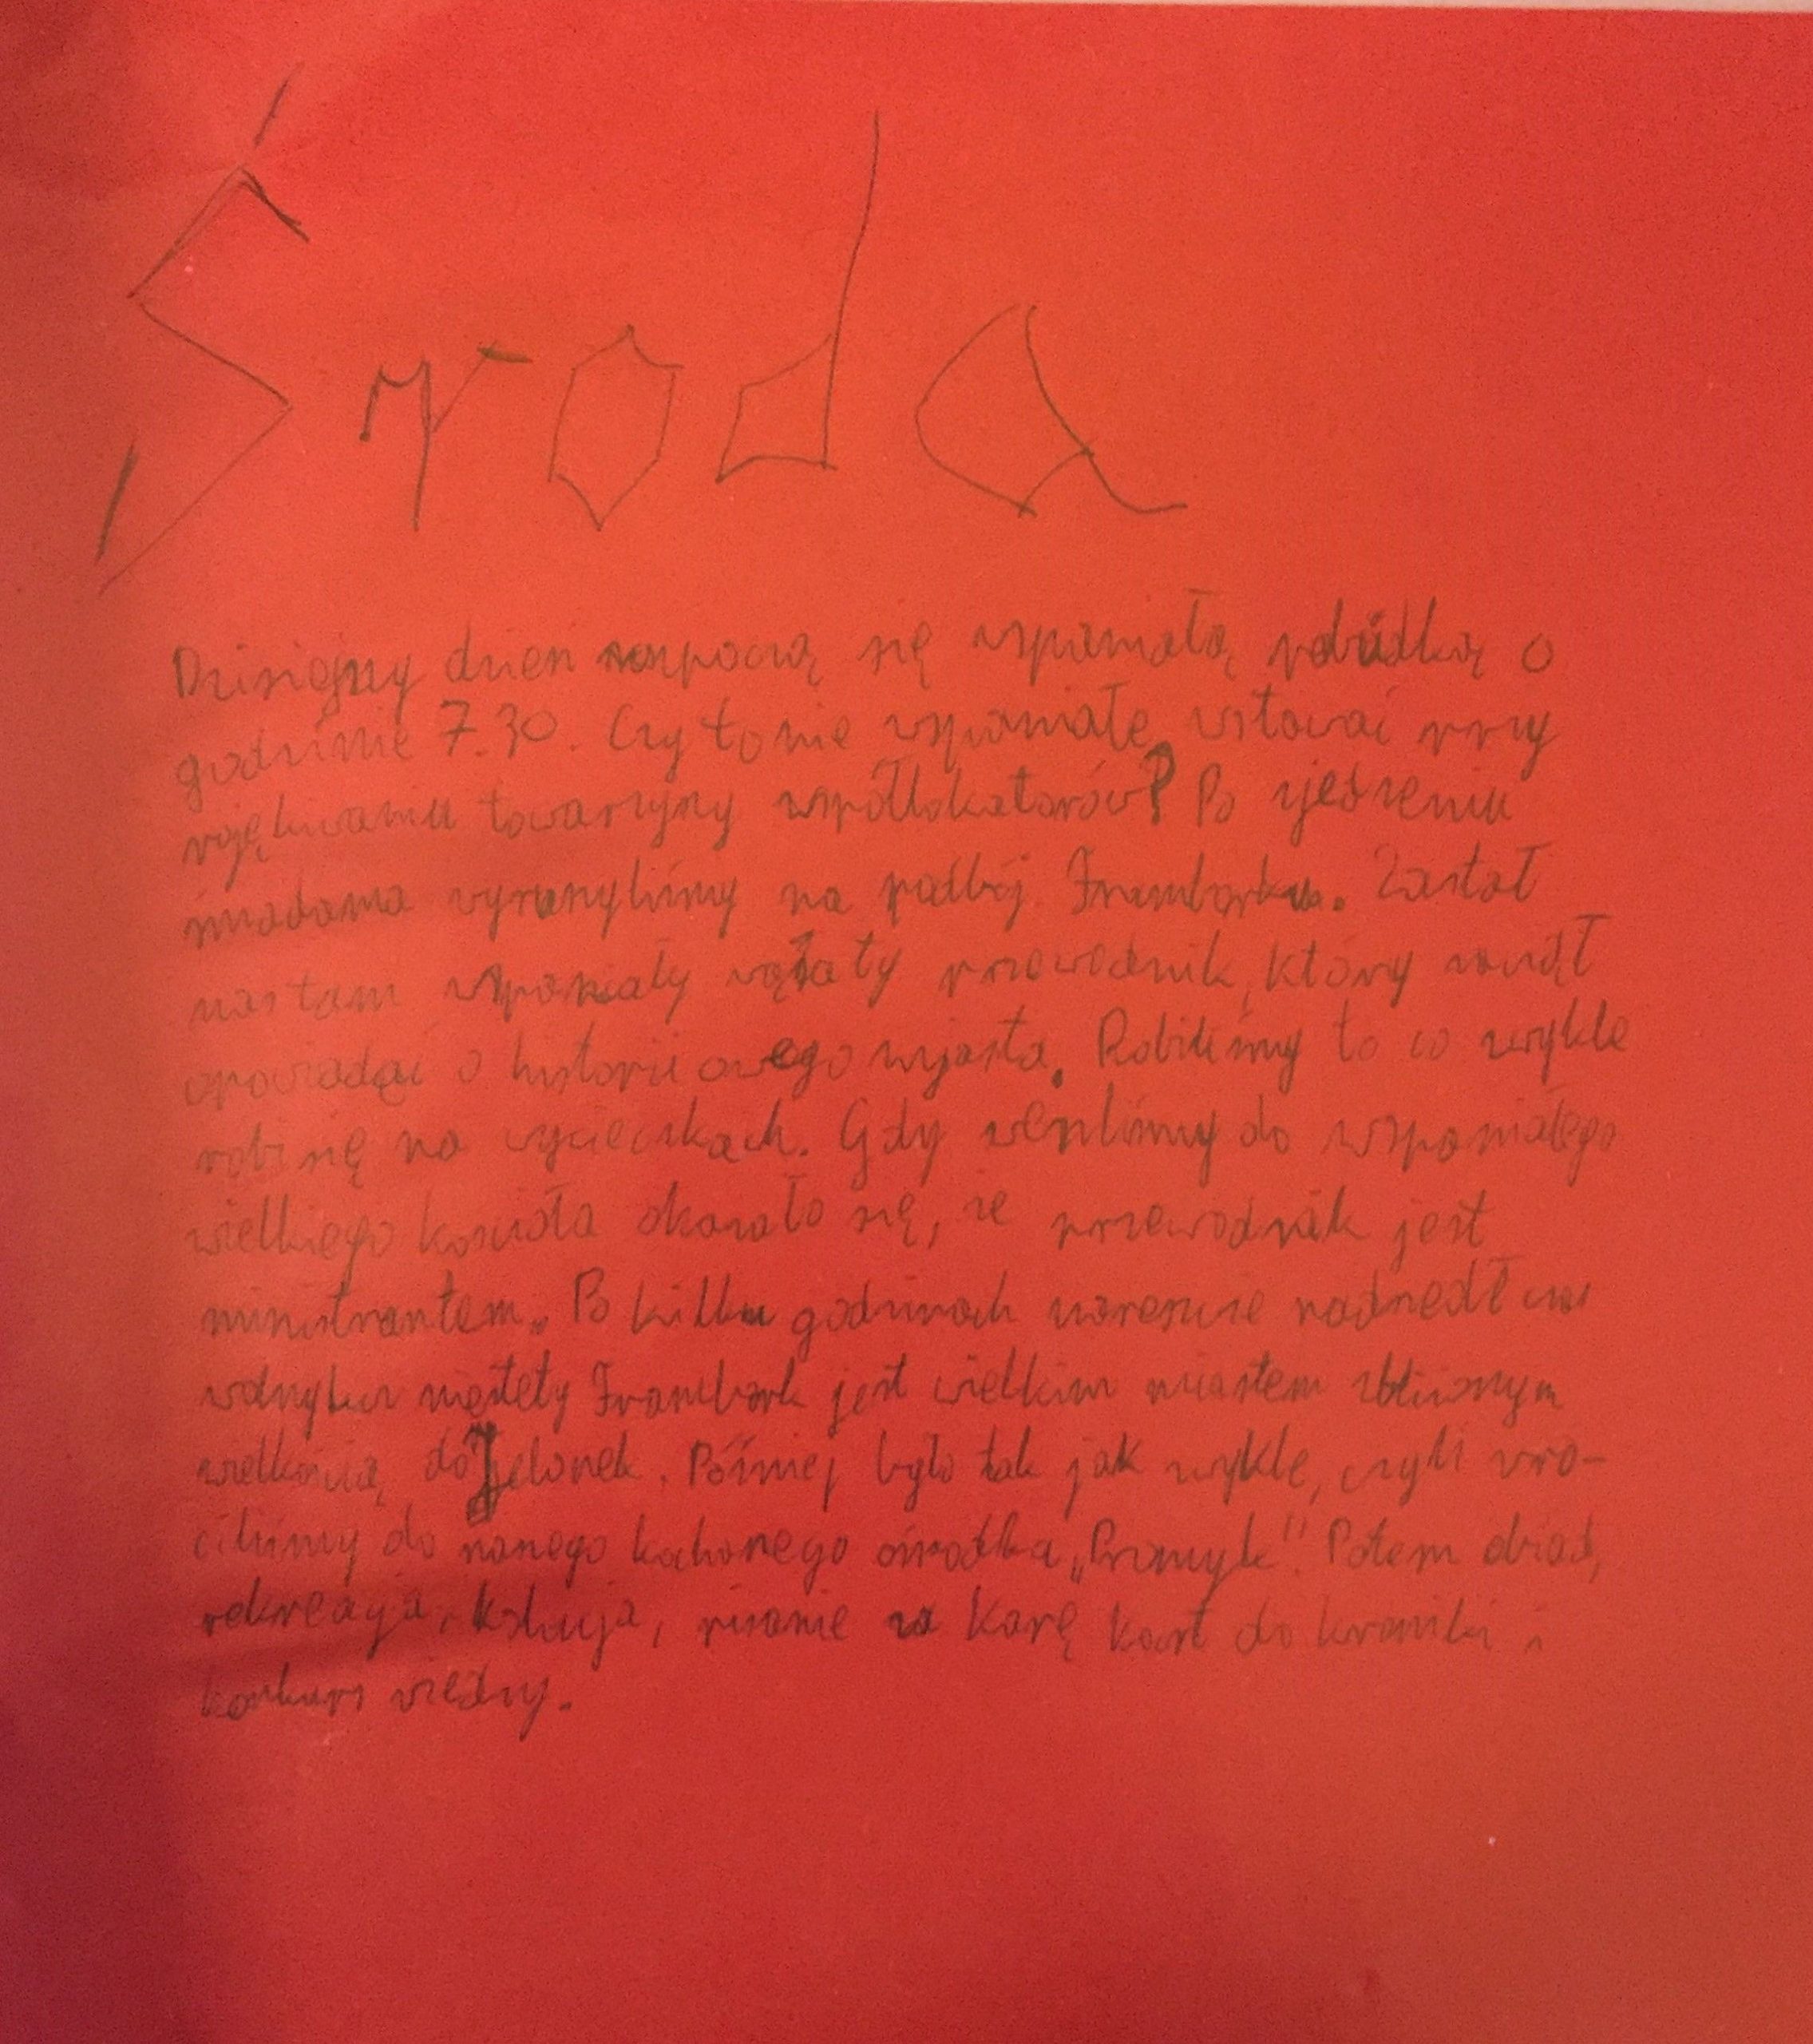 Środa
Dzisiejszy dzien się wspaniałą pobudką o
godzinie 7.30. Czy to nie wspaniałe wstawać przy
towarzyszy współlokatorów? Po zjedzeniu
śniadania wyruszyliśmy na podbój Fromborka. Zastał
nas tam wspaniały wąsaty przewodnik, który zaczął
opowiadać o historii owego mjasta. Robiliśmy to co zwykle
robi się na wycieczkach. Gdy weszliśmy do wspaniałego
wielkiego kościoła okazało się, że przewodnik jest
ministrantem. Po kilku godzinach nareszcie nadszedł czas
niestety Frombork jest wielkim miastem zbliżonym
wielkością do Jelonek. Później było tak jak zwykle, czyli wró-
ciliśmy do naszego kochanego ośrodka „Promyk" Potem obiad,
rekreacja, kolacja, pisanie za karę kart do kroniki i
konkurs wiedzy.